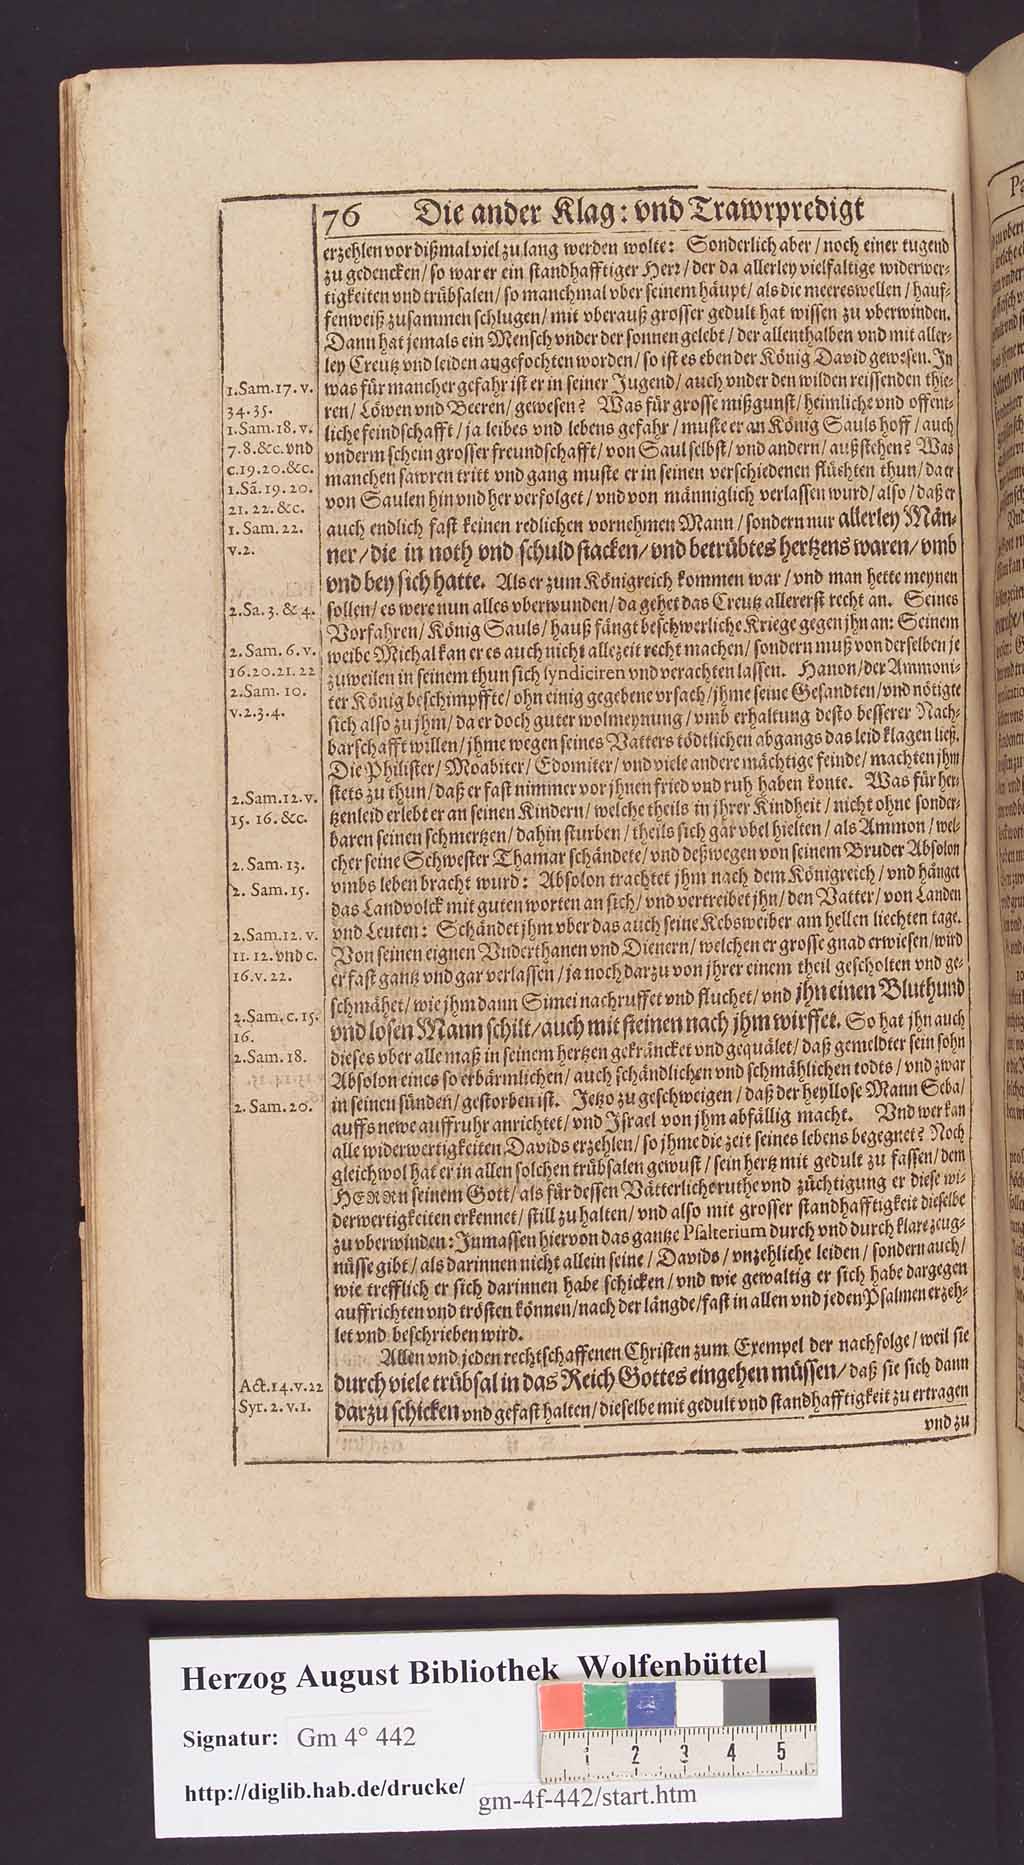 76 Die ander Klag: vnd Trawrpredigt
erzehlen vor dißmal viel zu lang werden wolte: Sonderlich aber / noch einer tugend
zu gedencken / so war er ein standhafftiger Herr / der da allerley vielfaltige widerwer-
tigkeiten vnd trübsalen / so manchmal vber seinem häupt / als die meereswellen / hauf-
fenweiß zusammen schlugen / mit vberauß grosser gedult hat wissen zu vberwinden.
Dann hat jemals ein Mensch vnder der sonnen gelebt / der allenthalben vnd mit aller-
ley Creutz vnd leiden angefochten worden / so ist es eben der König David gewesen. In
1.Sam.17.v. was für mancher gefahr ist er in seiner Jugend / auch vnder den wilden reissenden thie-
34.35. ren / Löwen vnd Beeren / gewesen? Was für grosse mißgunst / heimliche vnd offent-
1.Sam.18.v. liche feindschafft / ja leibes vnd lebens gefahr / muste er an König Sauls hoff / auch
7.8.&c.vnd vnderm schein grosser freundschafft / von Saul selbst / vnd andern / außstehen? Was
c.19.20.&c. manchen sawren tritt vnd gang muste er in seinen verschiedenen flüchten thun / da er
1.Sã.19.20. von Saulen hin vnd her verfolget / vnd von männiglich verlassen wurd / also / daß er
21.22.&c.
1.Sam.22. auch endlich fast keinen redlichen vornehmen Mann / sondern nur allerley Män-
v.2. ner / die in noth vnd schuld stacken / vnd betrübtes hertzens waren / vmb
vnd bey sich hatte. Als er zum Königreich kommen war / vnd man hette meynen
2.Sa.3.&4. sollen / es were nun alles vberwunden / da gehet das Creutz allererst recht an. Seines
Vorfahren / König Sauls / hauß fängt beschwerliche Kriege gegen jhn an: Seinem
2.Sam.6.v. weibe Michal kan er es auch nicht allezeit recht machen / sondern muß von derselben je
16.20.21.22 zuweilen in seinem thun sich lyndiciren vnd verachten lassen. Hanon / der Ammoni-
2.Sam.10. ter König beschimpffte / ohn einig gegebene vrsach / jhme seine Gesandten / vnd nötigte
v.2.3.4. sich also zu jhm / da er doch guter wolmeynung / vmb erhaltung desto besserer Nach-
barschafft willen / jhme wegen seines Vatters tödtlichen abgangs das leid klagen ließ.
Die Philister / Moabiter / Edomiter / vnd viele andere mächtige feinde / machten jhm
2.Sam.12.v. stets zu thun / daß er fast nimmer vor jhnen fried vnd ruh haben konte. Was für her-
15.16.&c. tzenleid erlebt er an seinen Kindern / welche theils in jhrer Kindheit / nicht ohne sonder-
baren seinen schmertzen / dahin sturben / theils sich gar vbel hielten / als Ammon / wel-
2.Sam.13. cher seine Schwester Thamar schändete / vnd deßwegen von seinem Bruder Absolon
2.Sam.15. vmbs leben bracht wurd: Absolon trachtet jhm nach dem Königreich / vnd hänget
das Landvolck mit guten worten an sich / vnd vertreibet jhn / den Vatter / von Landen
2.Sam.12.v. vnd Leuten: Schändet jhm vber das auch seine Kebsweiber am hellen liechten tage.
11.12.vnd c. Von seinen eignen Vnderthanen vnd Dienern / welchen er grosse gnad erwiesen / wird
16.v.22. er fast gantz vnd gar verlassen / ja noch darzu von jhrer einem theil gescholten vnd ge-
schmähet / wie jhm dann Simei nachruffet vnd fluchet / vnd jhn einen Bluthund
2.Sam.c.15. vnd losen Mann schilt / auch mit steinen nach jhm wirffet. So hat jhn auch
16.
2.Sam.18. dieses vber alle maß in seinem hertzen gekräncket vnd gequälet / daß gemeldter sein sohn
Absolon eines so erbärmlichen / auch schändlichen vnd schmählichen todts / vnd zwar
2.Sam.20. in seinen sünden / gestorben ist. Jetzo zu geschweigen / daß der heyllose Mann Seba /
auffs newe auffruhr anrichtet / vnd Israel von jhm abfällig macht. Vnd wer kan
alle widerwertigkeiten Davids erzehlen / so jhme die zeit seines lebens begegnet? Noch
gleichwol hat er in allen solchen trübsalen gewust / sein hertz mit gedult zu fassen / dem
HERRn seinem Gott / als für dessen Vätterliche ruthe vnd züchtigung er diese wi-
derwertigkeiten erkennet / still zu halten / vnd also mit grosser standhafftigkeit dieselbe
zu vberwinden: Inmassen hiervon das gantze Psalterium durch vnd durch klare zeug-
nüsse gibt / als darinnen nicht allein seine / Davids / vnzehliche leiden / sondern auch /
wie trefflich er sich darinnen habe schicken / vnd wie gewaltig er sich habe dargegen
auffrichten vnd trösten können / nach der längde / fast in allen vnd jeden Psalmen erzeh-
let vnd beschrieben wird.
Allen vnd jeden rechtschaffenen Christen zum Exempel der nachfolge / weil sie
Act.14.v.22 durch viele trübsal in das Reich Gottes eingehen müssen / daß sie sich dann
Syr.2.v.1. darzu schicken vnd gefast halten / dieselbe mit gedult vnd standhafftigkeit zu ertragen
vnd zu
Herzog August Bibliothek Wolfenbüttel
Signatur: Gm 4° 442
http://diglib.hab.de/drucke/ gm-4f-442/start.htm
1 2 3 4 5